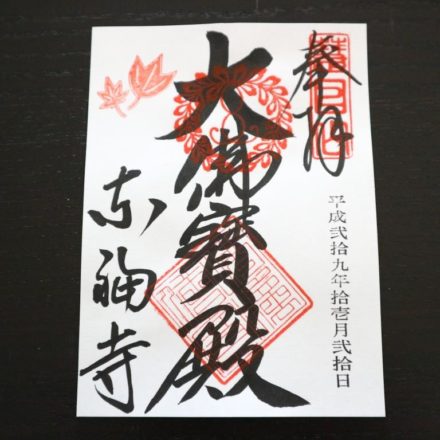 奉拝
平成弐拾九年拾壱月弐拾日
大佛寶殿
東福寺